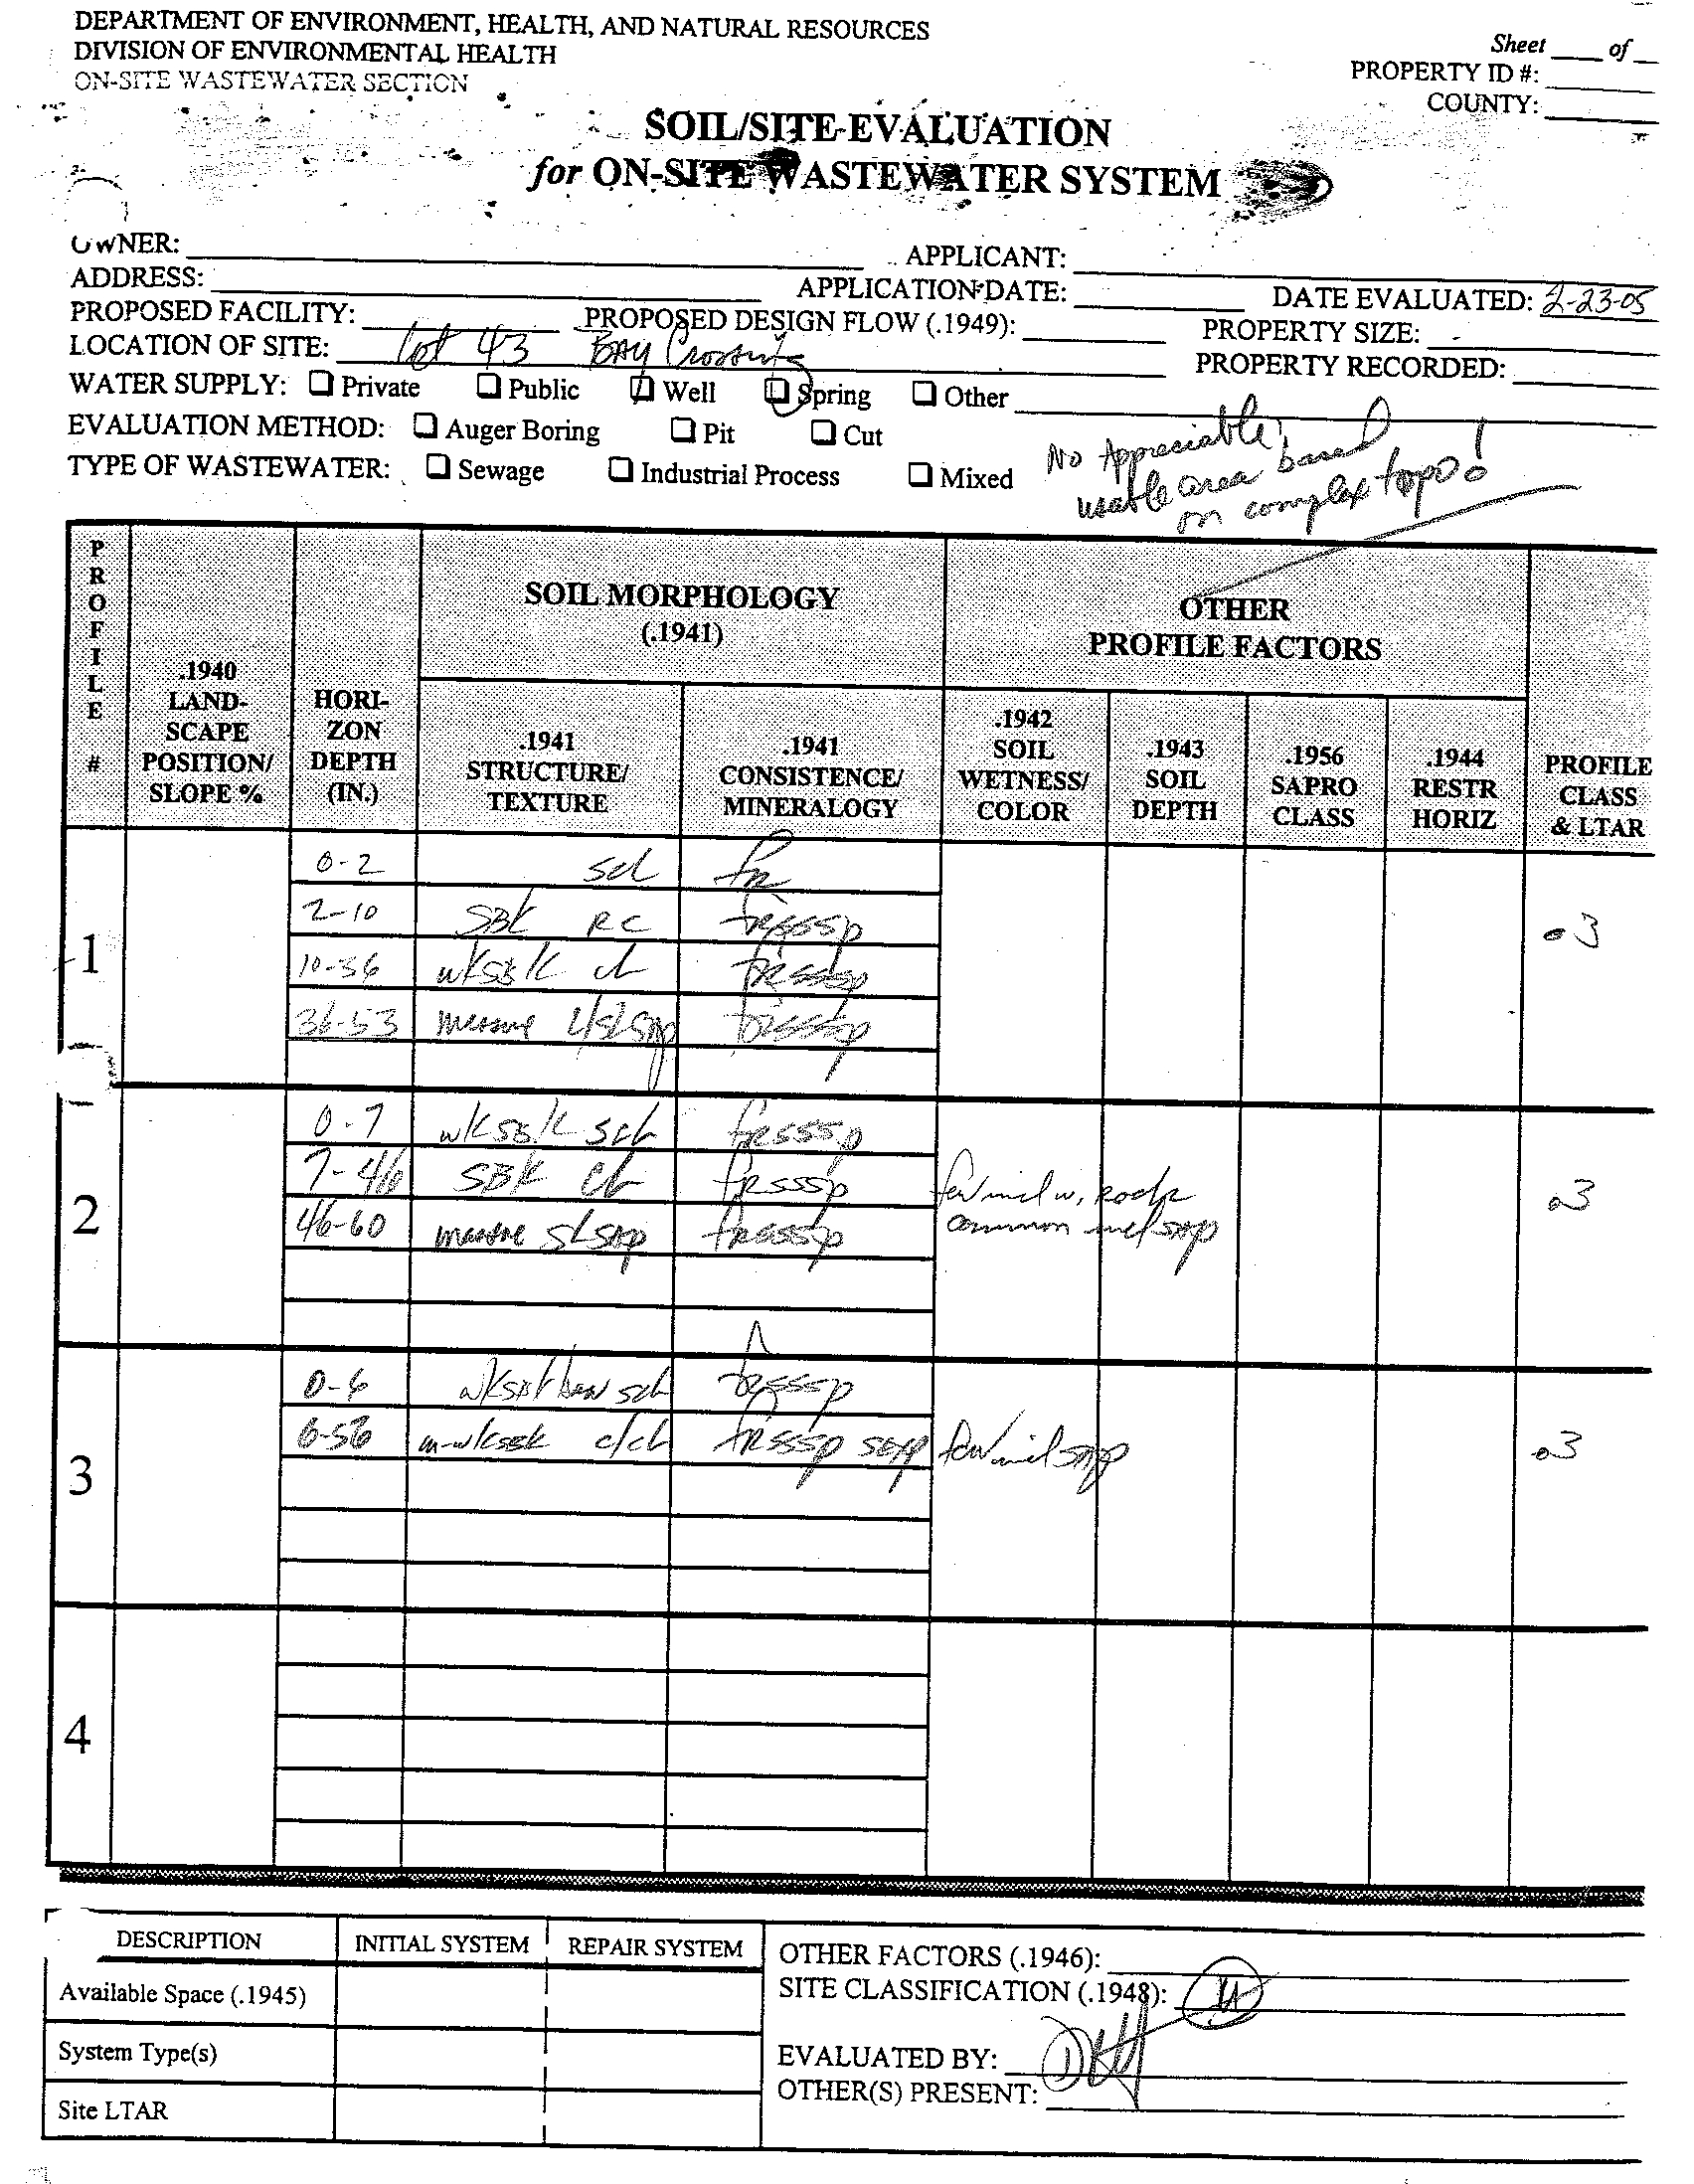 DEPARTMENT OF ENVIRONMENT, HEALTH, AND NATURAL RESOURCES
DIVISION OF ENVIRONMENTAL HEALTH
ON-SITE WASTEWATER SECTION
Sheet ____ of __
PROPERTY ID #:
COUNTY:
SOIL/SITE EVALUATION
for ON-SITE WASTEWATER SYSTEM
OWNER: APPLICANT:
ADDRESS: APPLICATION DATE: DATE EVALUATED: 2-23-05
PROPOSED FACILITY: PROPOSED DESIGN FLOW (.1949): PROPERTY SIZE:
LOCATION OF SITE: Lot 43 BAY Crossing PROPERTY RECORDED:
WATER SUPPLY: ☐ Private ☐ Public ☐ Well ☐ Spring ☐ Other
EVALUATION METHOD: ☐ Auger Boring ☐ Pit ☐ Cut
TYPE OF WASTEWATER: ☐ Sewage ☐ Industrial Process ☐ Mixed
No Appreciable
usable area based
on complex topo!
PROFILE #
.1940 LAND-SCAPE POSITION/ SLOPE %
HORI-ZON DEPTH (IN.)
SOIL MORPHOLOGY (.1941)
.1941 STRUCTURE/ TEXTURE
.1941 CONSISTENCE/ MINERALOGY
OTHER PROFILE FACTORS
.1942 SOIL WETNESS/ COLOR
.1943 SOIL DEPTH
.1956 SAPRO CLASS
.1944 RESTR HORIZ
PROFILE CLASS & LTAR
1
0-2 scl fr
2-10 SBK RC frsssp
10-36 wksbk cl frsssp
36-53 massive frsssp
.3
2
0-7 wksbk scl frsssp
7-46 SBK cl frsssp few w, rock
46-60 massive sl sap frsssp common sap
.3
3
0-6 wksbk scl frsssp
6-56 m-wksbk c/cl frsssp sexp few sap
.3
4
DESCRIPTION INITIAL SYSTEM REPAIR SYSTEM
Available Space (.1945)
System Type(s)
Site LTAR
OTHER FACTORS (.1946):
SITE CLASSIFICATION (.1948): U
EVALUATED BY:
OTHER(S) PRESENT: